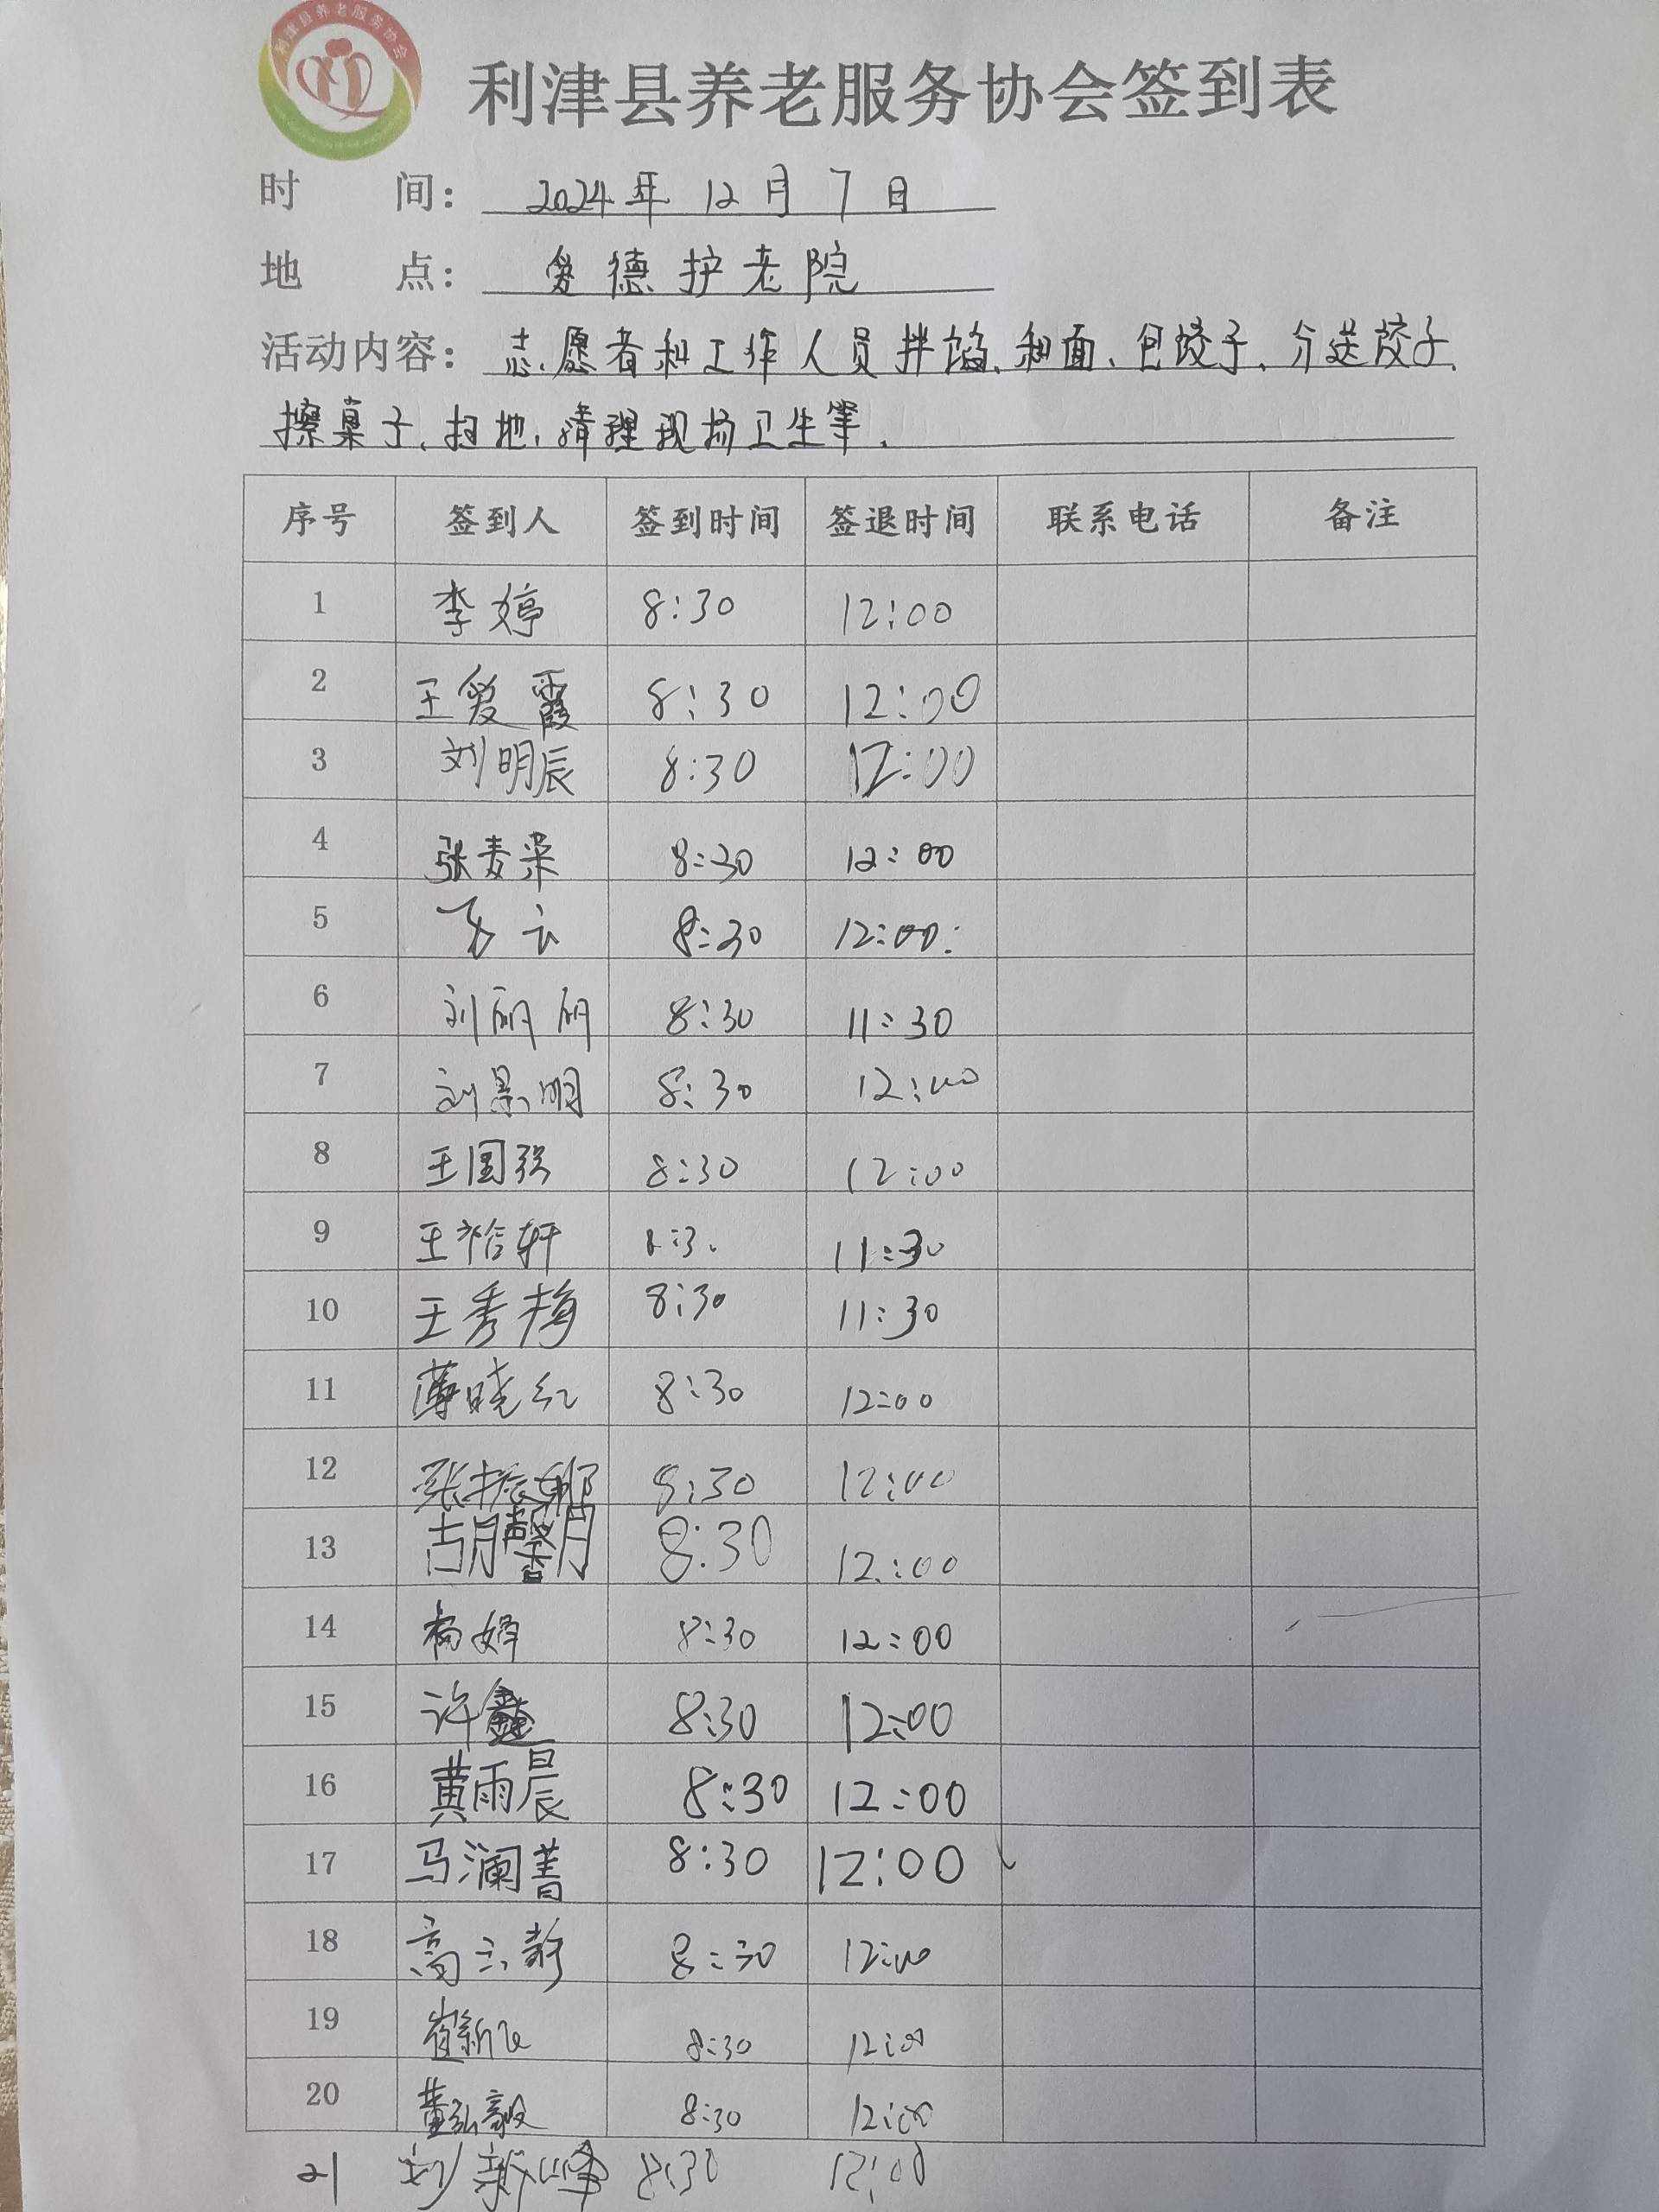 利津县养老服务协会
利津县养老服务协会签到表
时 间: 2024年12月7日
地 点: 爱德护老院
活动内容: 志愿者和工作人员拌馅、和面、包饺子、分送饺子、
擦桌子、扫地、清理现场卫生等.
序号 签到人 签到时间 签退时间 联系电话 备注
1 李婷 8:30 12:00
2 王爱霞 8:30 12:00
3 刘明辰 8:30 12:00
4 张麦荣 8:30 12:00
5 云 8:30 12:00:
6 刘丽丽 8:30 11:30
7 刘景明 8:30 12:00
8 王国强 8:30 12:00
9 王裕轩 8:30 11:30
10 王秀梅 8:30 11:30
11 薄晓红 8:30 12:00
12 张振娜 8:30 12:00
13 胡馨月 8:30 12:00
14 杨婷 8:30 12:00
15 许鑫 8:30 12:00
16 黄雨晨 8:30 12:00
17 马澜菁 8:30 12:00
18 高云静 8:30 12:00
19 崔新飞 8:30 12:00
20 董弘毅 8:30 12:00
21 刘新峰 8:30 12:00